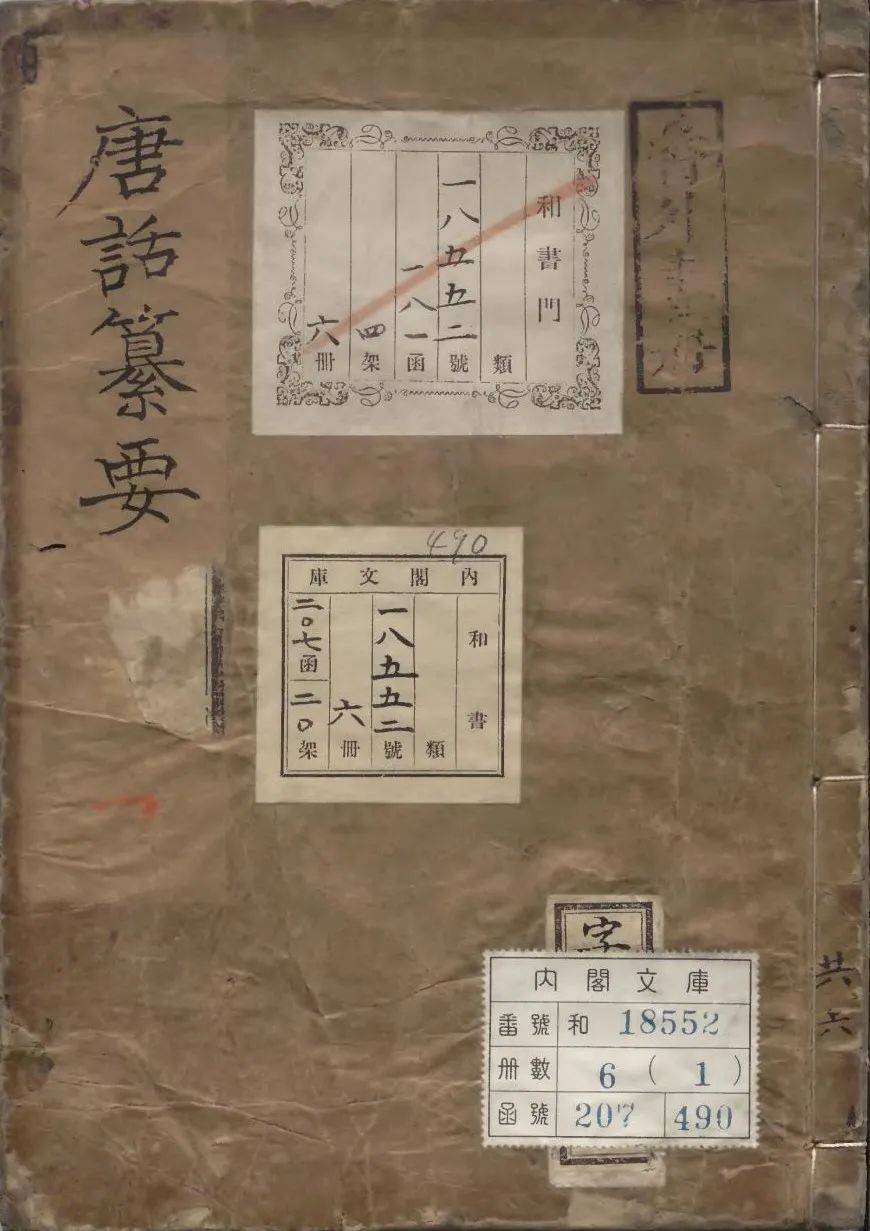 唐話纂要
一
和書門
類
一八五五二號
一八一函
四架
六冊
490
內閣文庫
和書
類
一八五五二號
六冊
二〇七函
二〇架
字
內閣文庫
番號 和 18552
冊數 6 ( 1 )
函號 207 490
共六